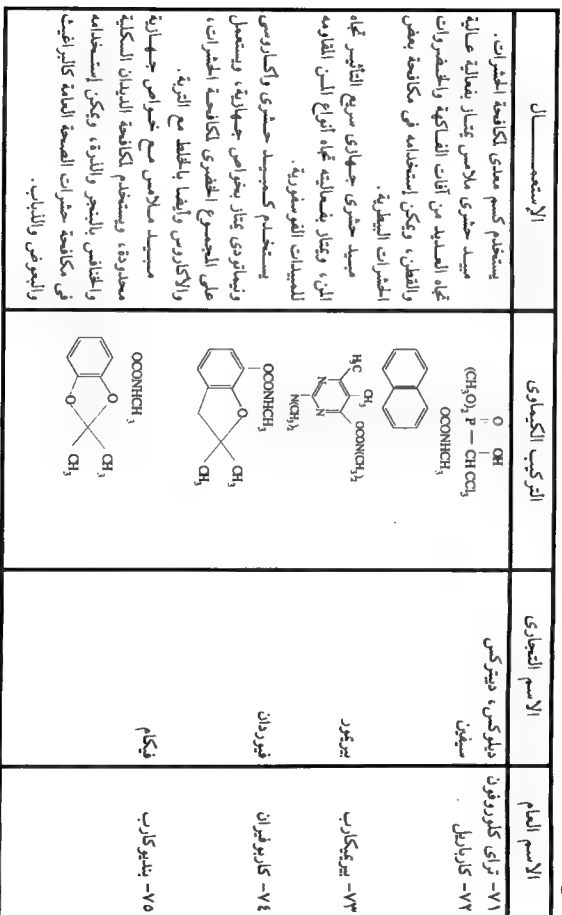 الاسم العام
الاسم التجارى
التركيب الكيماوى
الإستعمــــــال
٧١- تراى كلوروفون
ديلوكس، ديتركس
O OH
(CH3O)2 P — CH CCl3
يستخدم كسم معدى لمكافحة الحشرات.
٧٢- كارباريل
سيفين
OCONHCH3
مبيد حشرى ملامس يمتاز بفعالية عالية
تجاه العديد من آفات الفاكهة والخضروات
والقطن، ويمكن إستخدامه فى مكافحة بعض
الحشرات البيطرية.
٧٣- بيريميكارب
بيريمور
H3C
CH3
OCON(CH3)2
N
N
N(CH3)2
مبيد حشرى جهازى سريع التأثير تجاه
المن، ويمتاز بفعاليته تجاه أنواع المن المقاومه
للمبيدات الفوسفورية.
٧٤- كاربوفيران
فيوردان
OCONHCH3
O
CH3
CH3
يستخدم كمبيد حشرى واكاروسى
ونيماتودى يمتاز بخواص جهازية، ويستعمل
على المجموع الخضرى لمكافحة الحشرات،
والاكاروس وأيضا بالخلط مع التربة.
٧٥- بنديوكارب
فيكام
OCONHCH3
O
O
CH3
CH3
مبيد ملامس مع خواص جهازية
محدودة، ويستخدم لمكافحة الديدان السلكية
والخنافس بالبنجر والذرة، ويمكن إستخدامه
فى مكافحة حشرات الصحة العامة كالبراغيث
والبعوض والذباب.